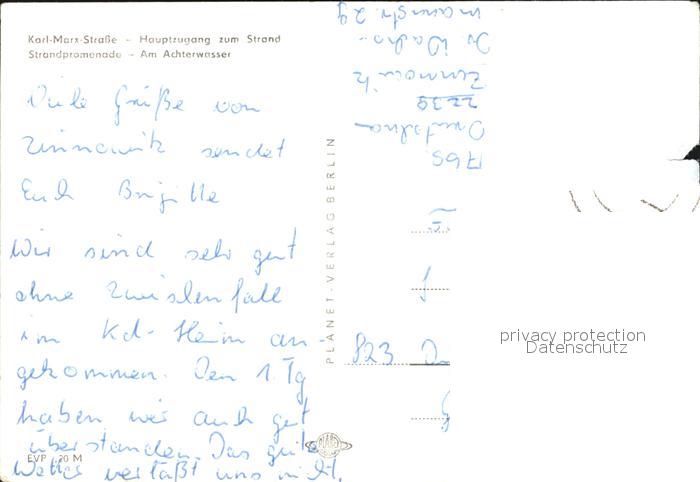 Karl-Marx-Straße - Hauptzugang zum Strand
Strandpromenade - Am Achterwasser
Viele Grüße von
Zinnowitz sendet
Euch Brigitte
Wir sind sehr gut
ohne Zwischenfall
im Kd-Heim an-
gekommen. Den 1. Tg
haben wir auch gut
überstanden. Das gute
Wetter verläßt uns nicht.
EVP 20 M
PLANET-VERLAG BERLIN
2238
Zinnowitz
823
privacy protection
Datenschutz